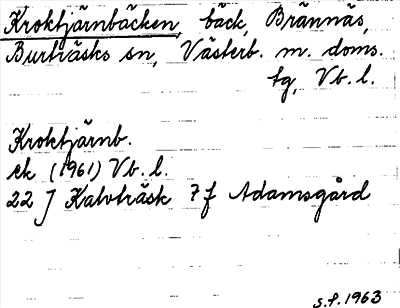 Kroktjärnbäcken, bäck, Brännäs,
Burträsks sn, Västerb. m. doms.
tg, Vb. l.
Kroktjärnb.
ek (1961) Vb. l.
22 J Kalvträsk 7 f Adamsgård
s.f. 1963